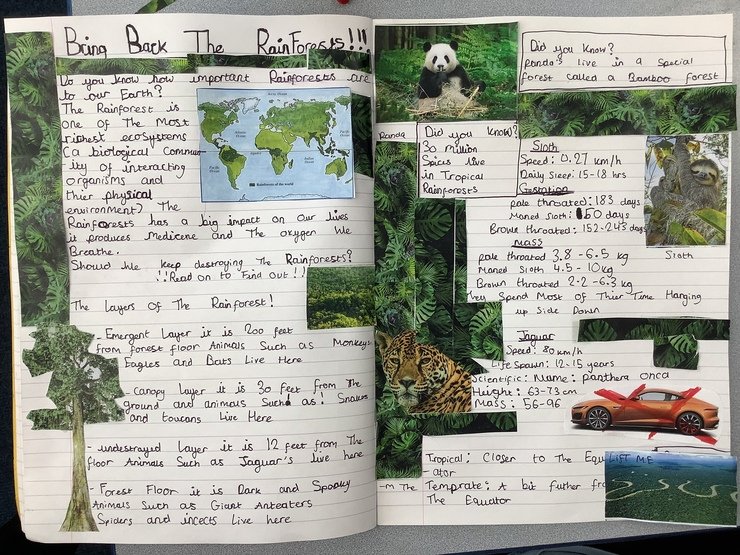 Bring Back The RainForests!!!
Do you know how important Rainforests are
to our Earth?
The Rainforest is
one of The Most
richest ecosystems
Ca biological Commun-
ity of interacting
organisms and
thier physical
environment? The
Rainforests has a big impact on Our lives
it produces Medicine and The oxygen We
Breathe.
Should We keep destroying The Rainforests?
!!!Read on to Find out!!!
The Layers of The Rainforest!
- Emergent Layer it is 200 feet
from forest floor Animals Such as Monkeys
Eagles and Bats Live Here
- Canopy Layer it is 30 feet from The
ground and animals Such as! Snakes
and toucans Live Here
- undestrayed Layer it is 12 feet from The
floor Animals Such as Jaguar's live here
- Forest Floor it is Dark and Spooky
Animals Such as Giant Anteaters
Spiders and incects Live here
Arctic Ocean
Atlantic Ocean
Pacific Ocean
Indian Ocean
Pacific Ocean
Equator
Rainforests of the world
Did you Know?
Panda's live in a Special
forest called a Bamboo forest
Panda
Did you Know?
30 million
Spices live
in Tropical
Rainforests
Sloth
Speed: 0.27 km/h
Daily Sleep: 15-18 hrs
Gestation
pale throated: 183 days
Maned Sloth: 150 days
Brown throated: 152-243 days
mass
pale throated 3.8 -6.5 kg
Maned Sloth 4.5 - 10kg
Brown throated 2.2 -6.3 kg
They Spend Most of Thier Time Hanging
up Side Down
Sloth
Jaguar
Speed: 80 km/h
Life Spawn: 12-15 years
Scientific: Nume: panthera onca
Height: 63-73 cm
Mass: 56-96
Tropical: Closer to The Equ
-ator
LIFT ME
-M The Temprate: A bit futher fro
The Equator